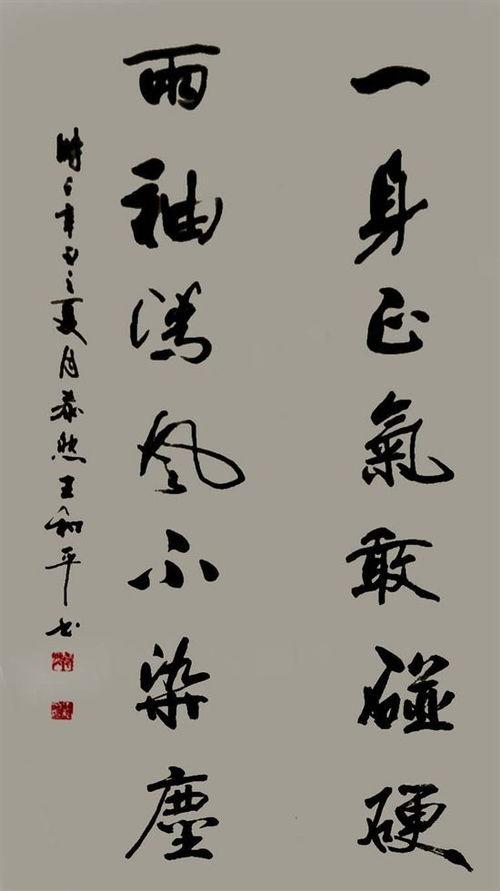 一身正氣敢碰硬
兩袖清風不染塵
時在辛丑之夏月泰然王和平书